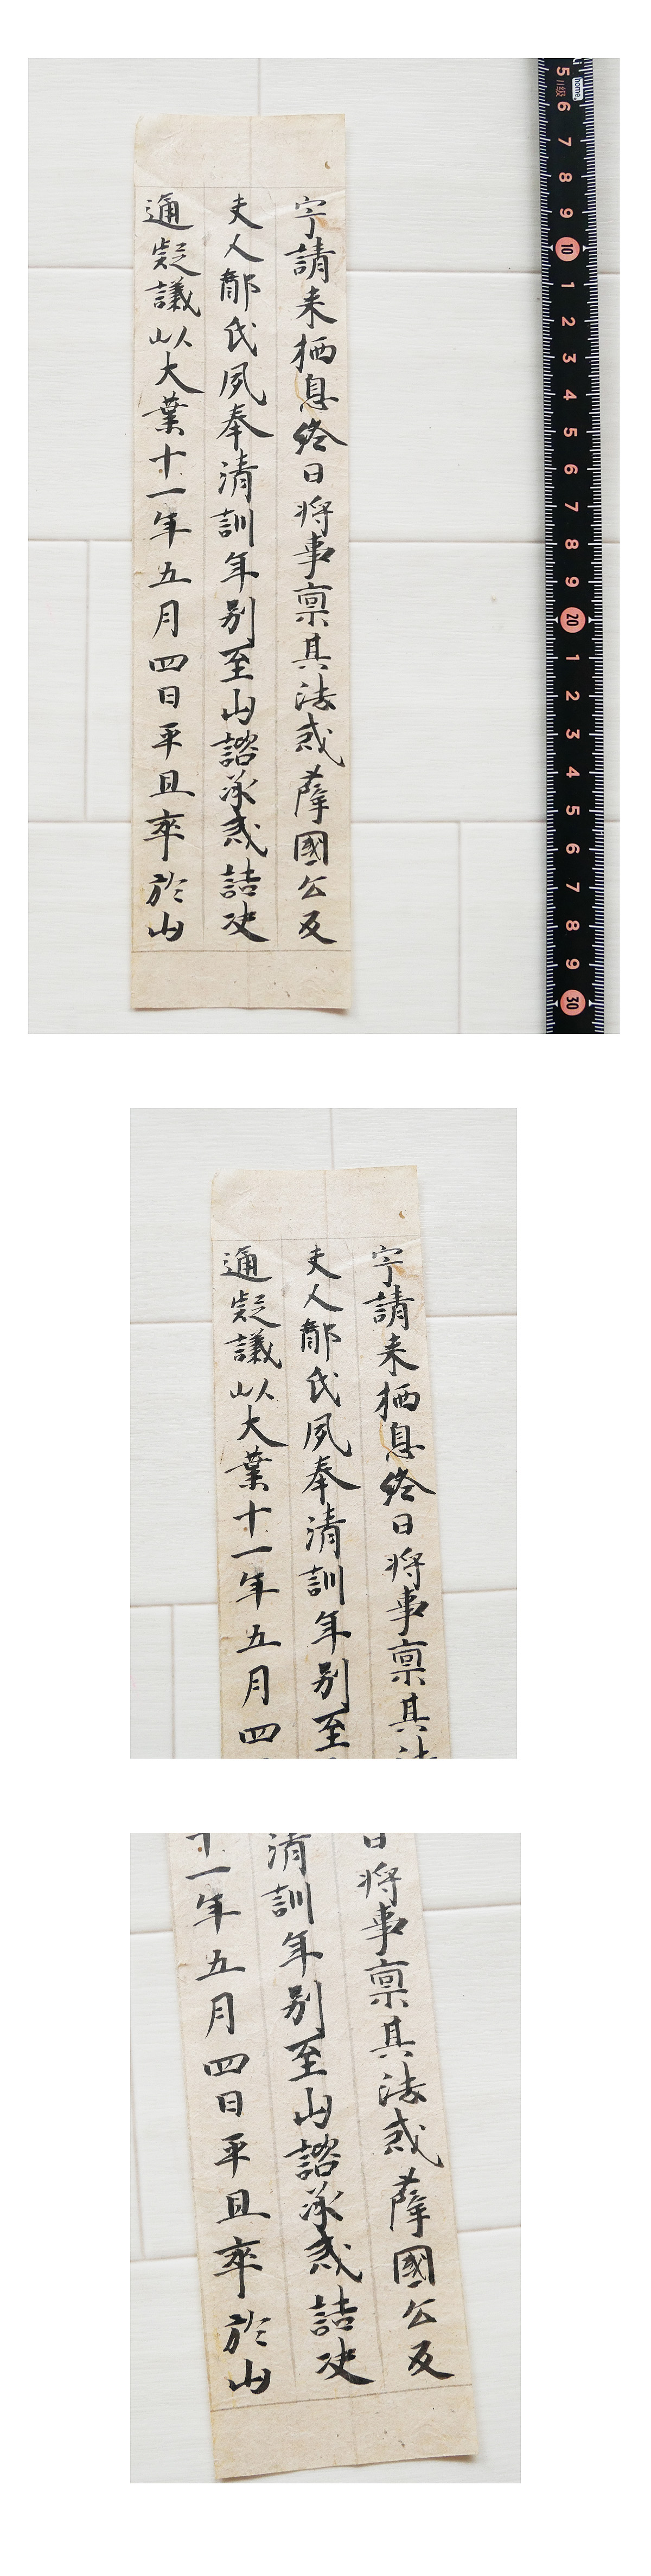 宇請来栖息終日將事禀其法戒薩國公及
夫人鄭氏夙奉清訓年別至山諮承戒誥决
通疑議以大業十一年五月四日平旦卒於山
5 6 7 8 9 10 1 2 3 4 5 6 7 8 9 20 1 2 3 4 5 6 7 8 9 30
II级
home.
夫人鄭氏夙奉清訓年別至
宇請来栖息終日將事禀其法
通疑議以大業十一年五月四
日將事禀其法戒薩國公及
清訓年別至山諮承戒誥决
十一年五月四日平旦卒於山